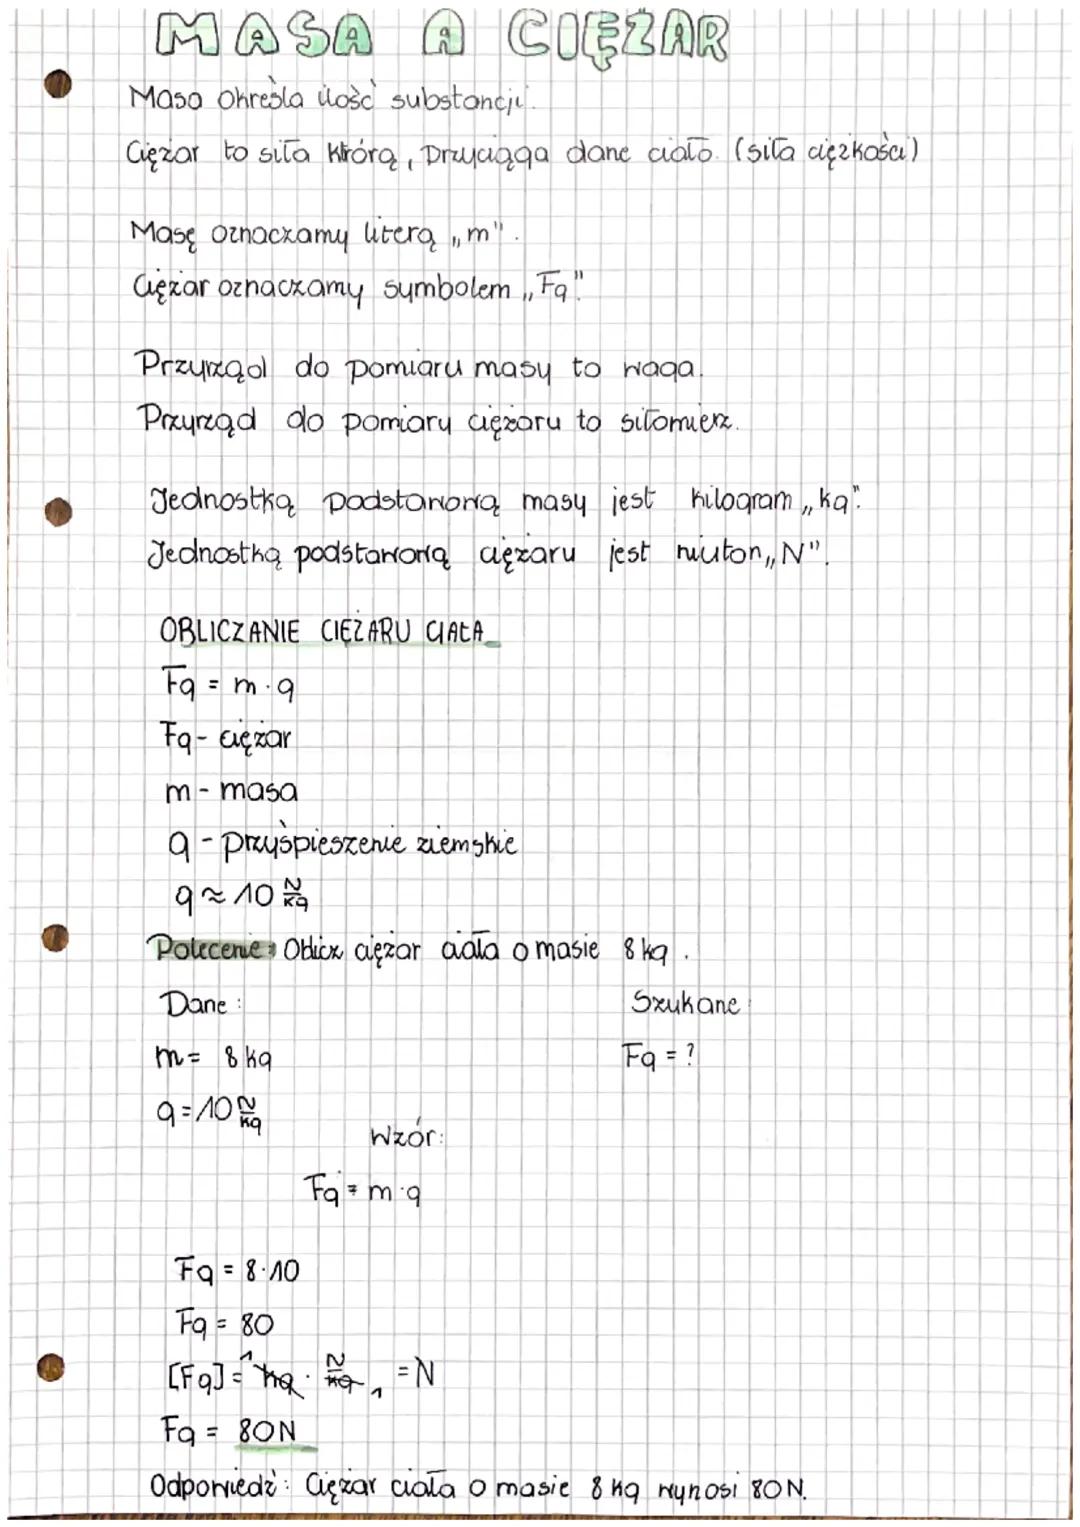 MASA A CIĘŻAR
Masa określa ilość substancji.
Ciężar to siła którą, przyciąga dane ciało. (siła ciężkości)
Masę oznaczamy literą „m".
Ciężar oznaczamy symbolem „Fg".
Przyrząd do pomiaru masy to waga.
Przyrząd do pomiary ciężaru to siłomierz.
Jednostką podstawową masy jest kilogram „kg".
Jednostką podstawową ciężaru jest niuton „N".
OBLICZANIE CIĘŻARU CIAŁA
Fg = m · g
Fg - ciężar
m - masa
g - przyśpieszenie ziemskie
g ≈ 10 N/kg
Polecenie: Oblicz ciężar ciała o masie 8 kg.
Dane: Szukane:
m = 8 kg Fg = ?
g = 10 N/kg
Wzór:
Fg = m · g
Fg = 8 · 10
Fg = 80
[Fg] = ¹kg · N/kg ₁ = N
Fg = 80N
Odpowiedź: Ciężar ciała o masie 8 kg wynosi 80N.